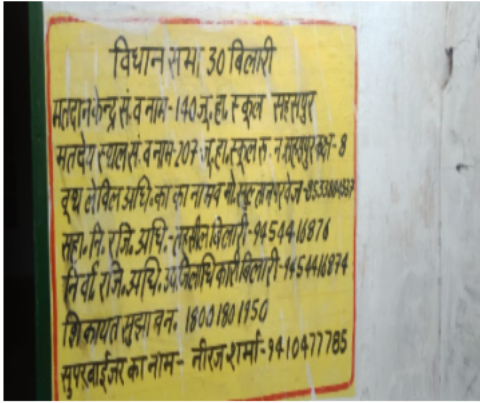 विधान सभा 30 बिलारी
मतदान केन्द्र सं. व नाम-140 जू. हा. स्कूल सहसपुर
मतदेय स्थल सं. व नाम-207-जू. हा. स्कूल रू. न. सहसपुर कक्ष-8
बूथ लेविल अधि. का नाम व मो.
सहा. नि. रजि. अधि.-तहसील बिलारी-9454416876
निर्वा. रजि. अधि. उपजिलाधिकारी बिलारी-9454416874
शिकायत सुझाव न. 18001801950
सुपरवाईजर का नाम- नीरज शर्मा-9410477785